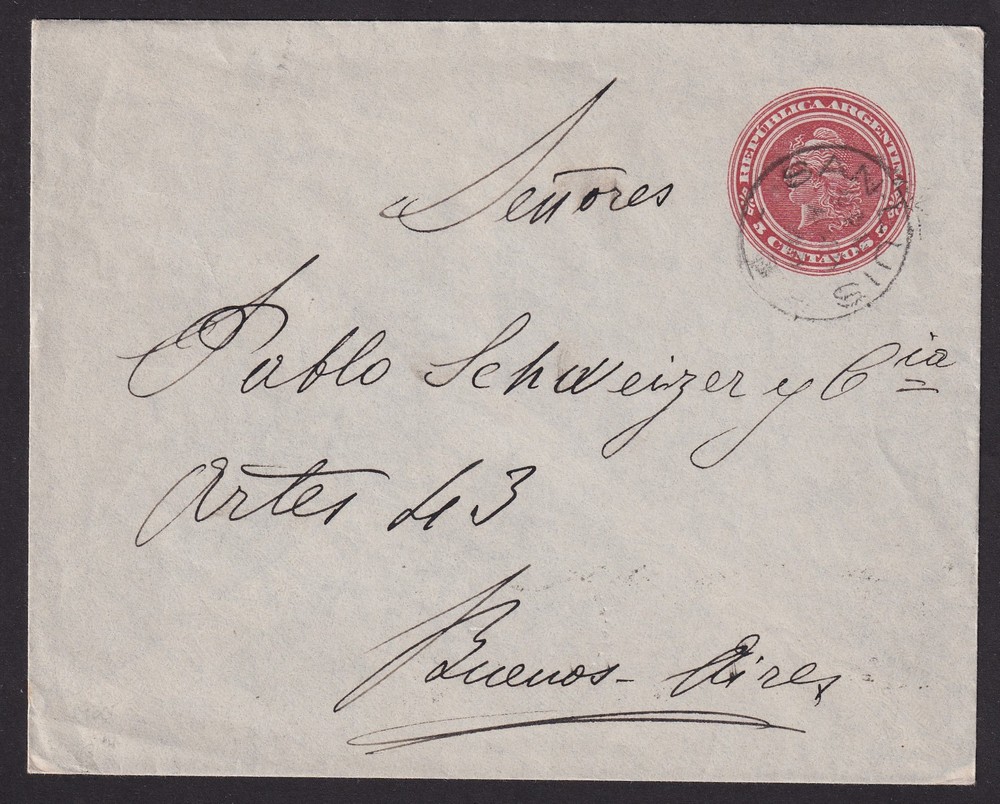 REPÚBLICA ARGENTINA
5 CENTAVOS 5
Señores
Pablo Schweizer y Cia
Artes 43
Buenos-Aires